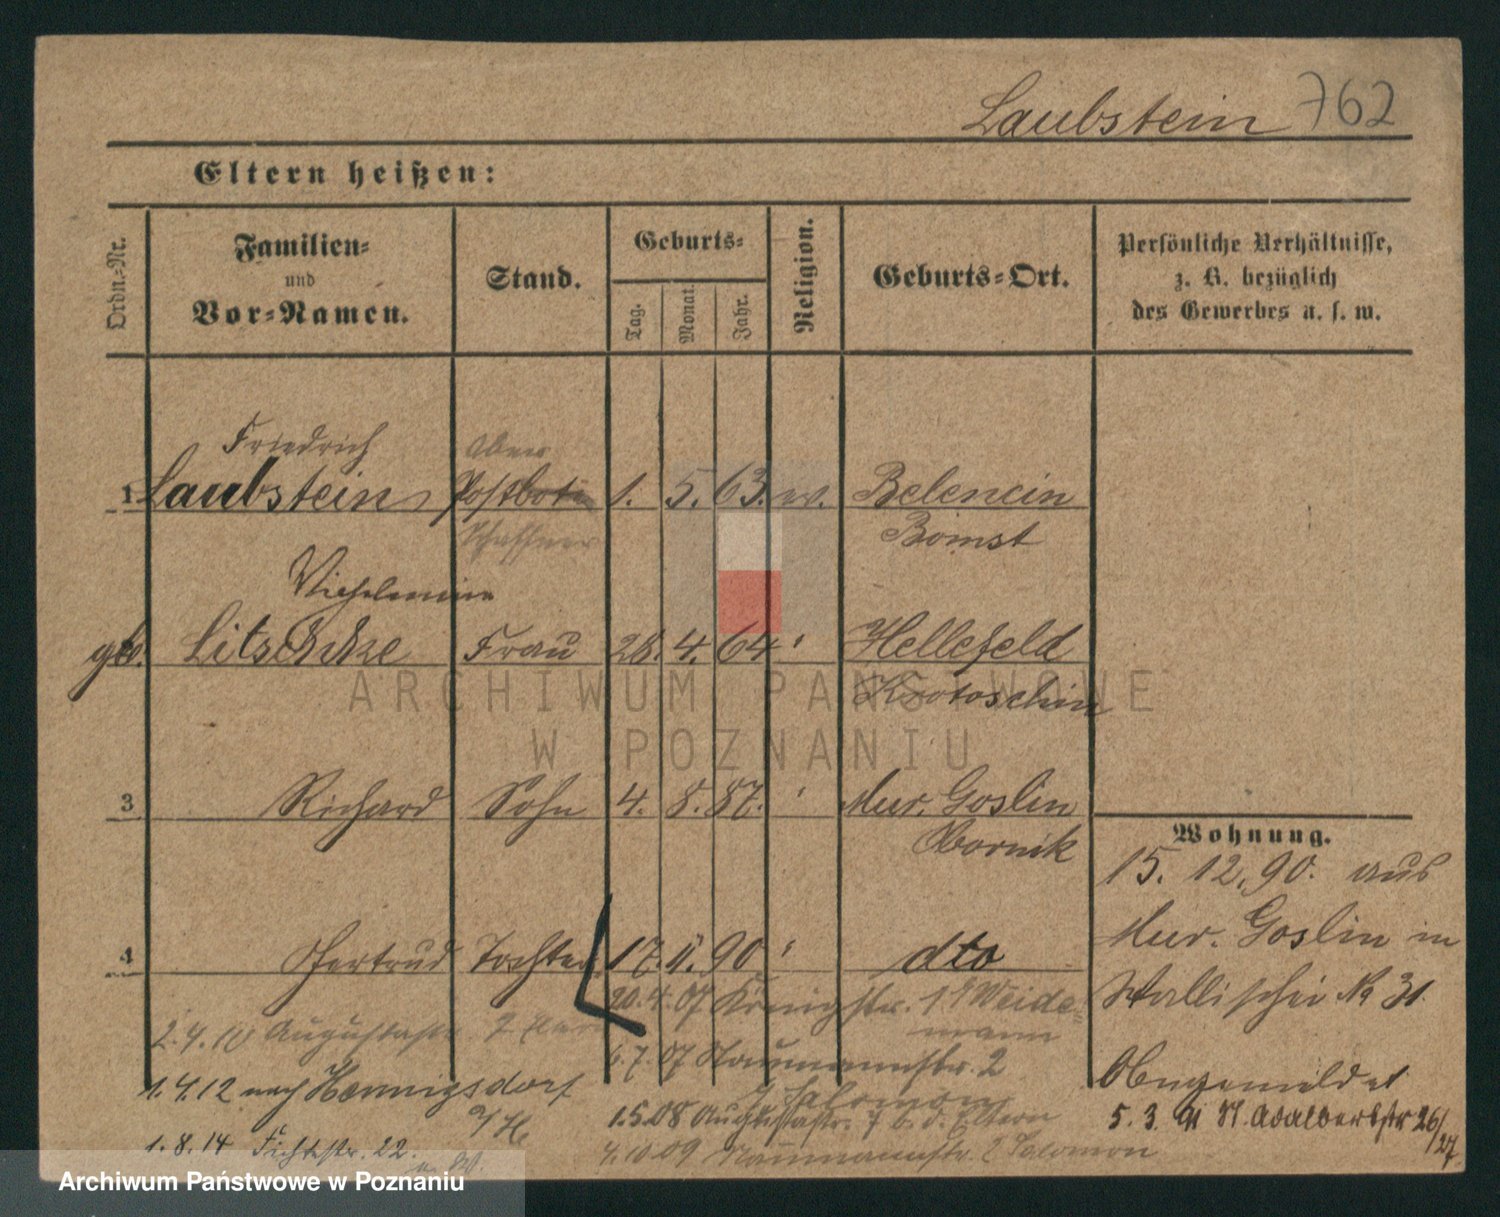 Laubstein 762
Eltern heißen:
Ordn.-Nr.
Familien-
und
Vor-Namen.
Stand.
Geburts-
Tag.
Monat.
Jahr.
Religion.
Geburts-Ort.
Persönliche Verhältnisse,
z. B. bezüglich
des Gewerbes u. s. w.
Friedrich
1 Laubstein Postbote 1. 5. 63. ev. Belencin
Schaffner Bomst
Wilhelmine
geb. Litschke Frau 28. 4. 64 " Hellefeld
Krotoschin
3 Richard Sohn 4. 8. 87. " Mur. Goslin
Obornik
4 Gertrud Tochter 17. 11. 90 " dto
Wohnung.
15. 12. 90. aus
Mur. Goslin in
Wallischei No 31.
Abgemeldet
5. 3. 91 St. Adalbertstr 26/27
20. 4. 07 Königstr. 19 Weide-
mann
6. 7. 07 Naumannstr. 2
Salomon
1.5.08 Augustastr. 7 b. d. Eltern
4.10.09 Naumannstr. 2 Salomon
2.4.10 Augustastr. 7
1.4.12 nach Hennigsdorf
a/H
1.8.14 Fichtestr. 22.
ARCHIWUM PAŃSTWOWE
W POZNANIU
Archiwum Państwowe w Poznaniu